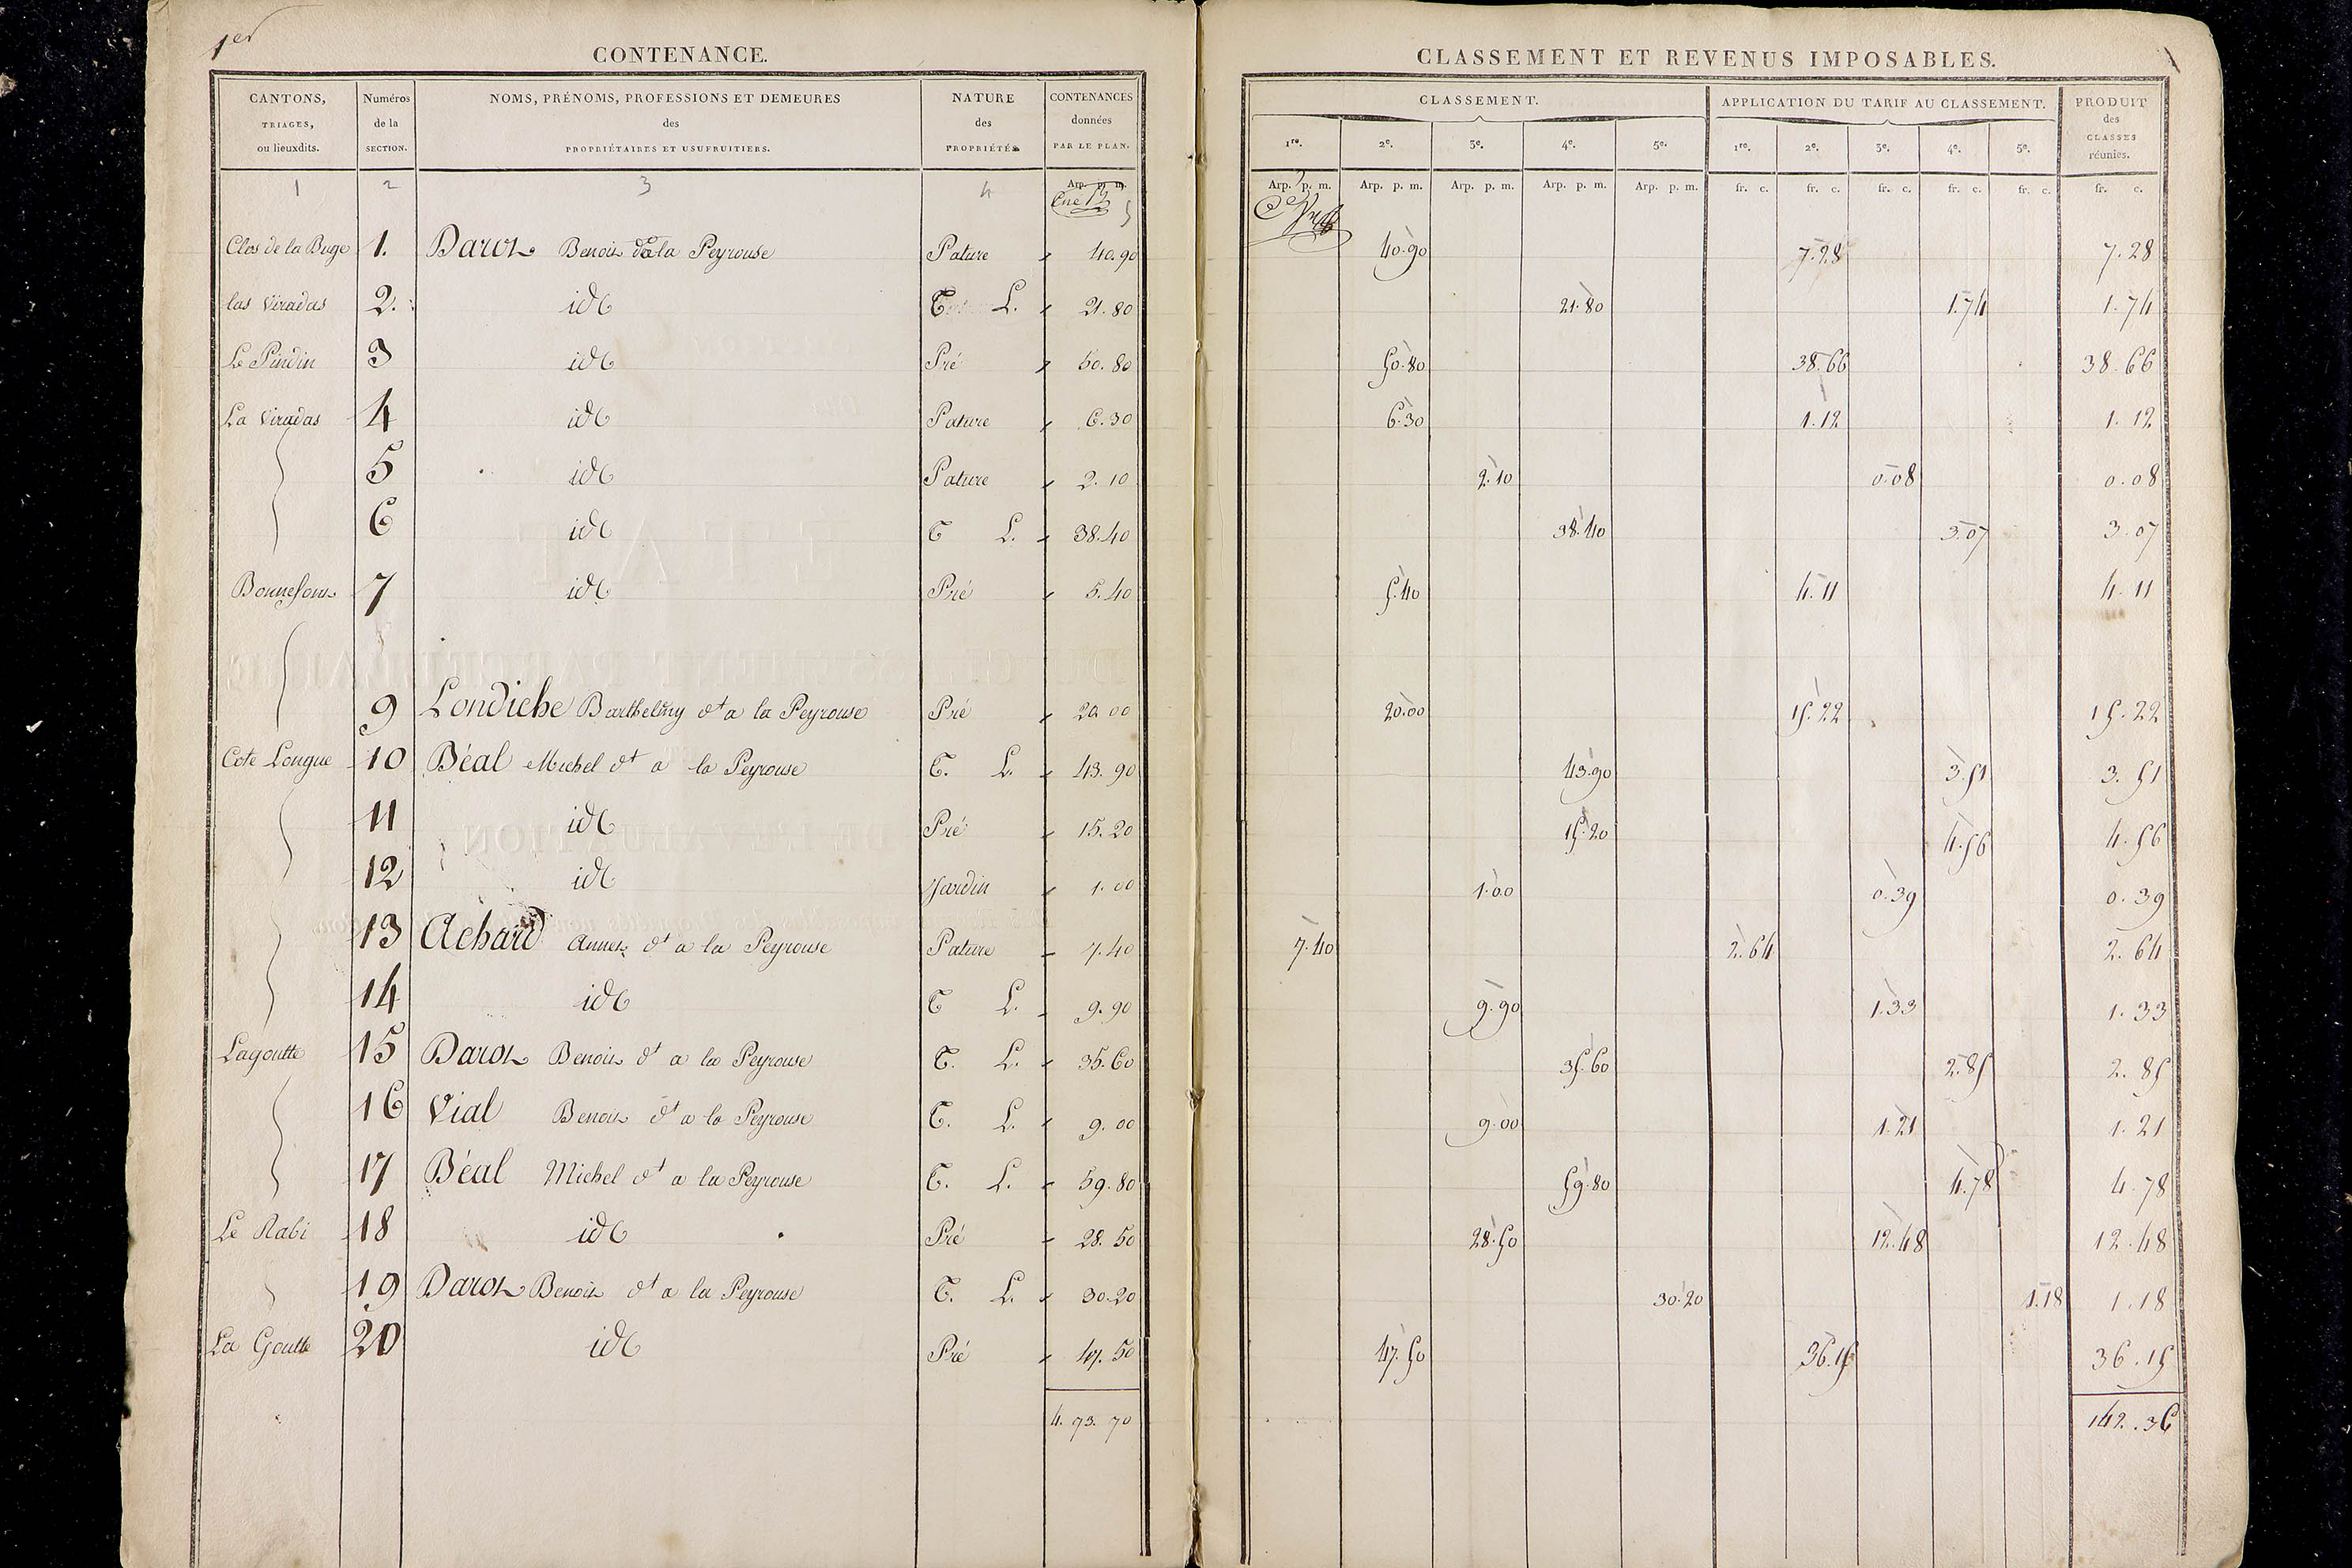 1er
CONTENANCE.
CANTONS, TRIAGES, ou lieuxdits. | Numéros de la SECTION. | NOMS, PRÉNOMS, PROFESSIONS ET DEMEURES des PROPRIÉTAIRES ET USUFRUITIERS. | NATURE des PROPRIÉTÉS | CONTENANCES données PAR LE PLAN.
1 2 3 4 Arp. p. m. 5
Clos de la Buge 1. Darot Benoit à la Peyrouse Pature 40.90
las Viradas 2. id T L. 21.80
Le Pindin 3 id Pré 50.80
La Viradas 4 id Pature 6.30
5 id Pature 2.10
6 id T L. 38.40
Bonnefont 7 id Pré 5.40
9 Londiche Barthelmy dt a la Peyrouse Pré 20 00
Cote Longue 10 Béal Michel dt a la Peyrouse T. L. 43.90
11 id Pré 15.20
12 id Jardin 1.00
13 Achard Annet dt a la Peyrouse Pature 7.40
14 id T L. 9.90
Lagoutte 15 Darot Benoit dt a la Peyrouse T. L. 35.60
16 Vial Benoit dt a la Peyrouse T. L. 9.00
17 Béal Michel dt a la Peyrouse T. L. 59.80
Le Rabi 18 id Pré 28.50
19 Darot Benoit dt a la Peyrouse T. L. 30.20
La Goutte 20 id Pré 47.50
4.73.70
CLASSEMENT ET REVENUS IMPOSABLES.
CLASSEMENT. | APPLICATION DU TARIF AU CLASSEMENT. | PRODUIT des CLASSES réunies.
1re. 2e. 3e. 4e. 5e. 1re. 2e. 3e. 4e. 5e.
Arp. p. m. Arp. p. m. Arp. p. m. Arp. p. m. Arp. p. m. fr. c. fr. c. fr. c. fr. c. fr. c. fr. c.
40.90 7.28 7.28
21.80 1.74 1.74
50.80 38.66 38.66
6.30 1.12 1.12
2.10 0.08 0.08
38.40 3.07 3.07
5.40 4.11 4.11
20.00 15.22 15.22
43.90 3.51 3.51
15.20 4.56 4.56
1.00 0.39 0.39
7.40 2.64 2.64
9.90 1.33 1.33
35.60 2.85 2.85
9.00 1.21 1.21
59.80 4.78 4.78
28.50 12.48 12.48
30.20 1.18 1.18
47.50 36.15 36.15
142.36